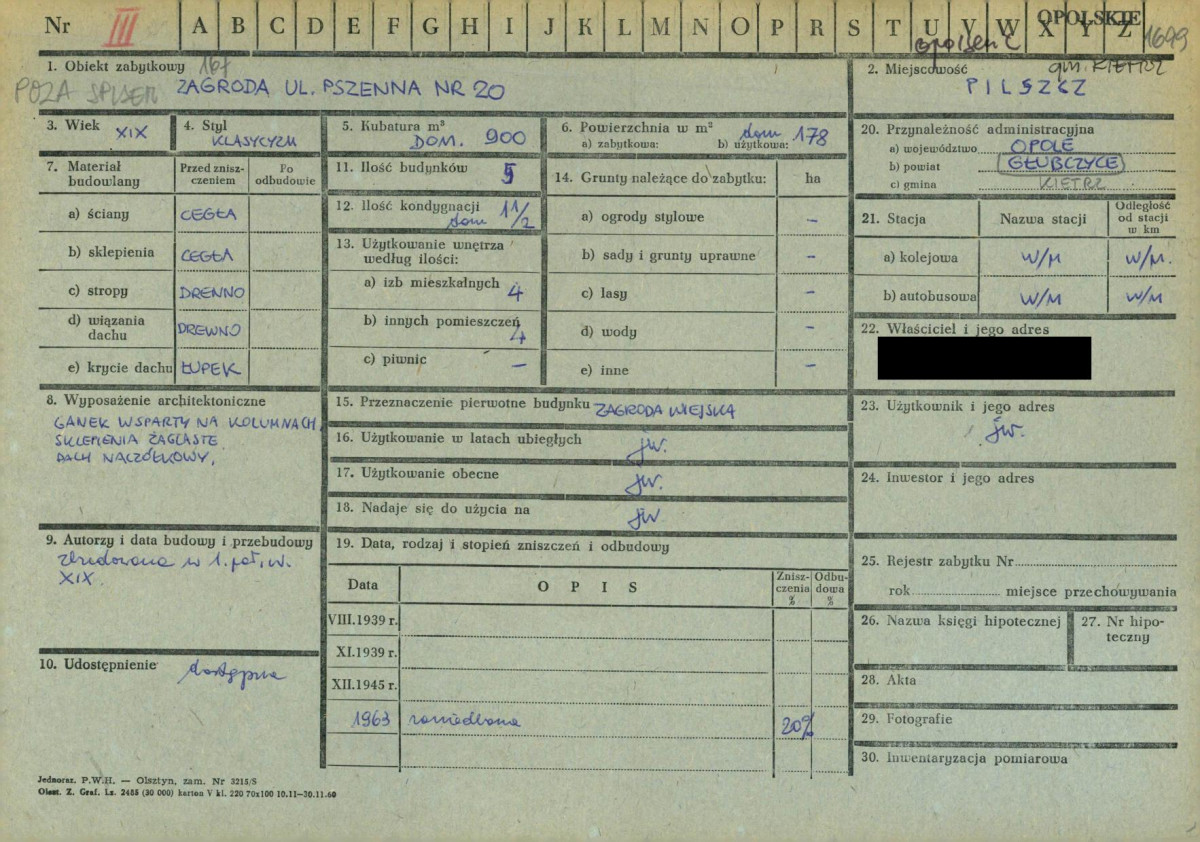 Nr III A B C D E F G H I J K L M N O P R S T U V W X Y Z
OPOLSKIE
1699
1. Obiekt zabytkowy
POZA SPISEM ZAGRODA UL. PSZENNA NR 20
2. Miejscowość gm. KIETRZ
PILSZCZ
3. Wiek XIX
4. Styl
KLASYCYZM
5. Kubatura m³
DOM. 900
6. Powierzchnia w m²
a) zabytkowa: b) użytkowa: dom 178
7. Materiał budowlany
Przed zniszczeniem
Po odbudowie
a) ściany CEGŁA
b) sklepienia CEGŁA
c) stropy DREWNO
d) wiązania dachu DREWNO
e) krycie dachu ŁUPEK
8. Wyposażenie architektoniczne
GANEK WSPARTY NA KOLUMNACH,
SKLEPIENIA ŻAGLASTE
DACH NACZÓŁKOWY.
9. Autorzy i data budowy i przebudowy
zbudowana w 1. poł. w.
XIX.
10. Udostępnienie dostępna
11. Ilość budynków 5
12. Ilość kondygnacji
dom 1 1/2
13. Użytkowanie wnętrza
według ilości:
a) izb mieszkalnych 4
b) innych pomieszczeń 4
c) piwnic –
14. Grunty należące do zabytku: ha
a) ogrody stylowe –
b) sady i grunty uprawne –
c) lasy –
d) wody –
e) inne –
15. Przeznaczenie pierwotne budynku ZAGRODA WIEJSKA
16. Użytkowanie w latach ubiegłych jw.
17. Użytkowanie obecne jw.
18. Nadaje się do użycia na jw
19. Data, rodzaj i stopień zniszczeń i odbudowy
Data O P I S Zniszczenia % Odbudowa %
VIII.1939 r.
XI.1939 r.
XII.1945 r.
1963 zaniedbana 20%
20. Przynależność administracyjna
a) województwo OPOLE
b) powiat GŁUBCZYCE
c) gmina KIETRZ
21. Stacja Nazwa stacji Odległość od stacji w km
a) kolejowa W/M W/M.
b) autobusowa W/M W/M
22. Właściciel i jego adres
23. Użytkownik i jego adres
jw.
24. Inwestor i jego adres
25. Rejestr zabytku Nr
rok miejsce przechowywania
26. Nazwa księgi hipotecznej
27. Nr hipoteczny
28. Akta
29. Fotografie
30. Inwentaryzacja pomiarowa
Jednoraz. P.W.H. — Olsztyn, zam. Nr 3215/S
Olszt. Z. Graf. Lz. 2485 (30 000) karton V kl. 220 70x100 10.11—30.11.60